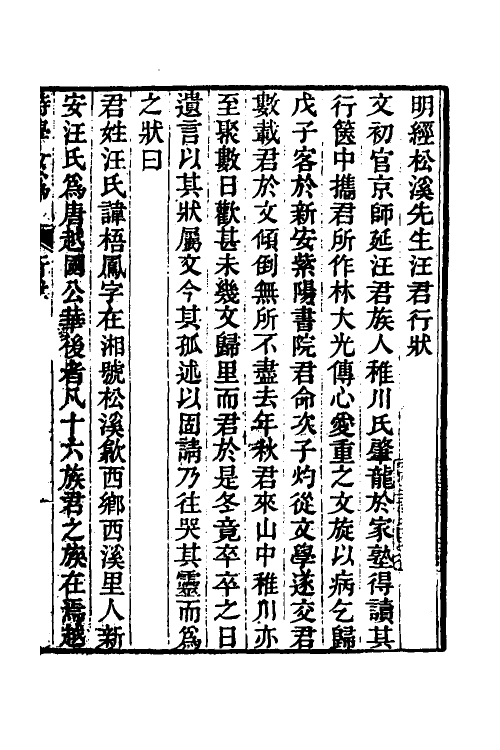 明經松溪先生汪君行狀
文初官京師延汪君族人稚川氏肇龍於家塾得讀其
行篋中攜君所作林大光傳心愛重之文旋以病乞歸
戊子客於新安紫陽書院君命次子灼從文學遂交君
數載君於文傾倒無所不盡去年秋君來山中稚川亦
至聚數日歡甚未幾文歸里而君於是冬竟卒卒之日
遺言以其狀屬文今其孤述以固請乃往哭其靈而爲
之狀曰
君姓汪氏諱梧鳳字在湘號松溪歙西鄉西溪里人新
安汪氏爲唐越國公華後者凡十六族君之族在焉越